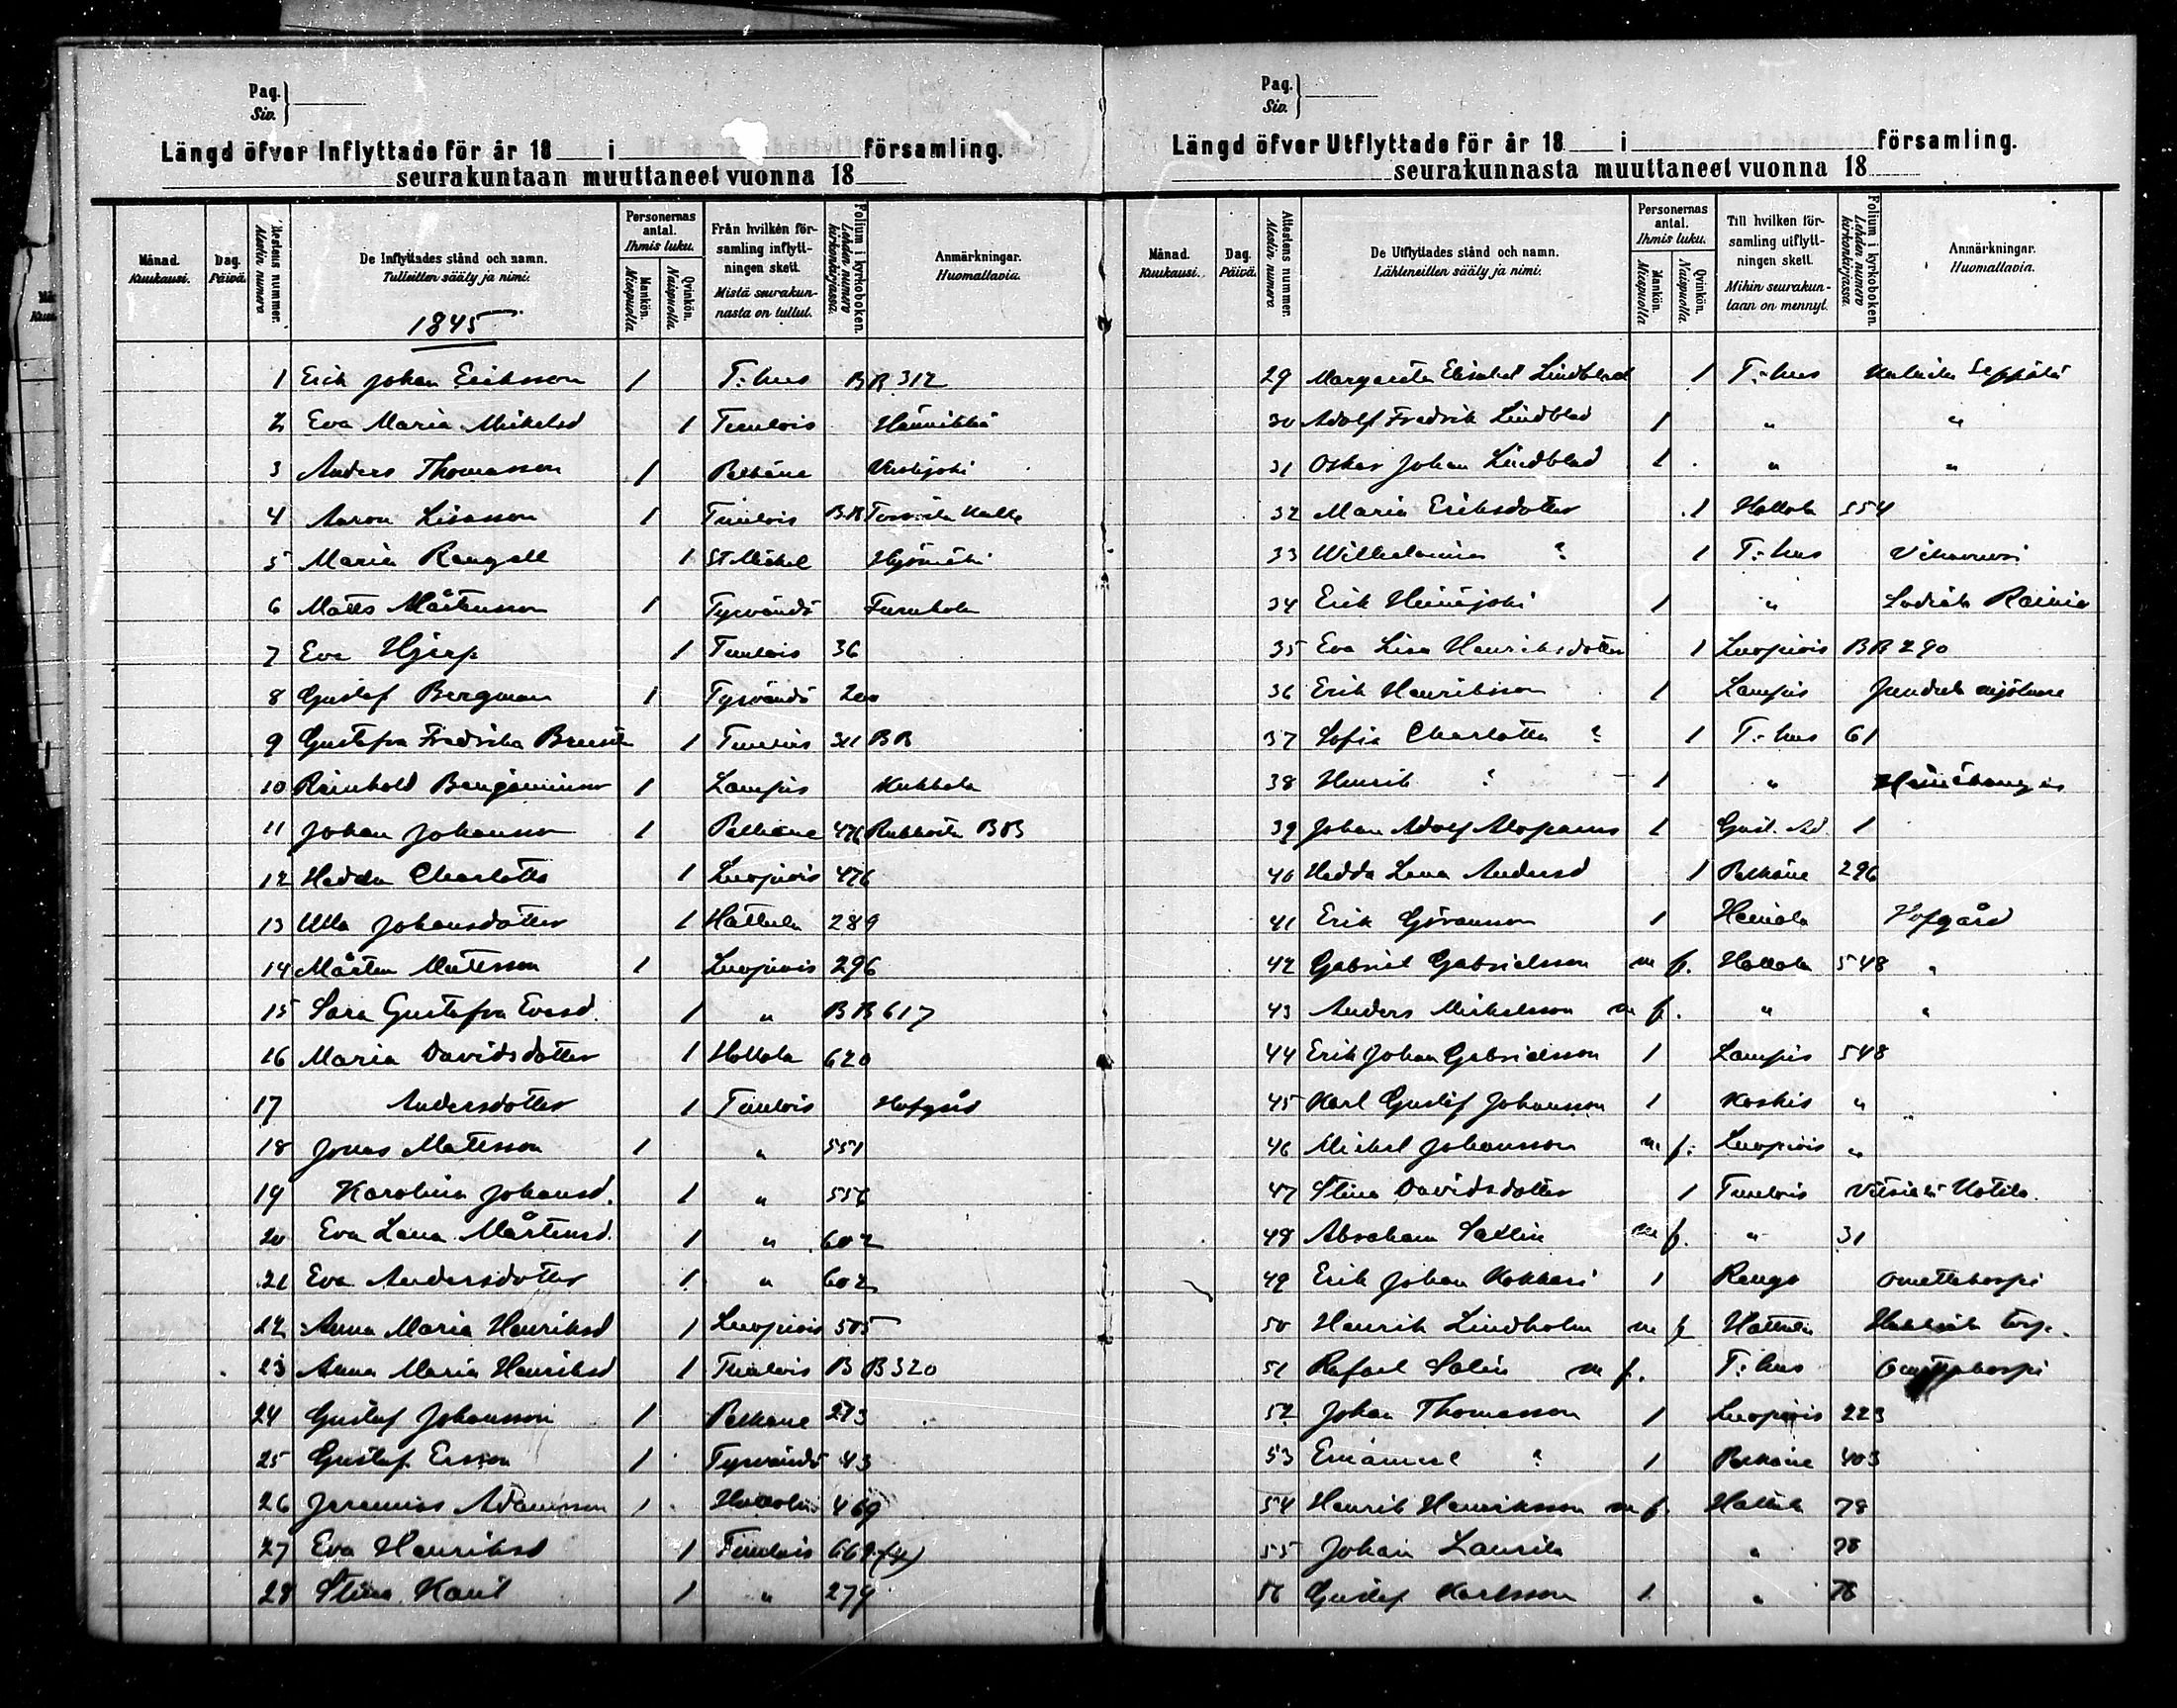 Pag.
Siv.
Längd öfver Inflyttade för år 18 i församling.
seurakuntaan muuttaneet vuonna 18
Månad. Kuukausi.
Dag. Päivä.
nummer. Alestin numero
De Inflyttades stånd och namn.
Tulleitten sääty ja nimi.
Personernas antal. Ihmis luku.
Mankön. Miespuolia
Qvinkön. Naispuolia
Från hvilken församling inflyttningen skett.
Mistä seurakunnasta on tullut.
Folium i kyrkoboken. Lehden numero kirkonkirjassa.
Anmärkningar. Huomattavia.
1845
1 Erik Johan Eriksson 1 T:hus BB 312
2 Eva Maria Mikelsd 1 Tuulois Hännikkä
3 Anders Thomasson 1 Pelkäne
4 Aaron Lisasson 1 Tuulois BB
5 Maria Rangell 1 St Mickel
6 Matts Mårtensson 1 Tyrvändö
7 Eva 1 Tuulois 36
8 Gustaf Bergman 1 Tyrvändö 200
9 Gustafva Fredrika 1 Tuulois 311 BB
10 Reinhold Benjaminsson 1 Lampis Kukkola
11 Johan Johansson 1 Pelkäne 476 BB
12 Hedda Charlotta 1 Luopiois 476
13 Ulla Johansdotter 1 Hattula 289
14 Mårten Matsson 1 Luopiois 296
15 Sara Gustafva Evasd. 1 " BB 617
16 Maria Davidsdotter 1 Hollola 620
17 Andersdotter 1 Tuulois Hofgård
18 Jonas Matsson 1 " 551
19 Karolina Johansd. 1 " 556
20 Eva Lena Mårtensd. 1 " 602
21 Eva Andersdotter 1 " 602
22 Anna Maria Henriksd 1 Luopiois 505
23 Anna Maria Henriksd 1 Tuulois BB 320
24 Gustaf Johansson 1 Pelkäne 273
25 Gustaf Ersson 1 Tyrvändö 43
26 Jeremias Adamsson 1 Hollola 469
27 Eva Henriksd 1 Tuulois 669
28 Stina 1 " 279
Pag.
Siv.
Längd öfver Utflyttade för år 18 i församling.
seurakunnasta muuttaneet vuonna 18
Månad. Kuukausi.
Dag. Päivä.
Attestens nummer. Alestin numero
De Utflyttades stånd och namn.
Lähteneitten sääty ja nimi.
Personernas antal. Ihmis luku.
Mankön. Miespuolia
Qvinkön. Naispuolia.
Till hvilken församling utflyttningen skett.
Mihin seurakuntaan on mennyt.
Folium i kyrkoboken. Lehden numero kirkonkirjassa.
Anmärkningar. Huomattavia.
29 Margareta Elisabet Lindblad 1 T:hus Seppälä
30 Adolf Fredrik Lindblad 1 " "
31 Oskar Johan Lindblad 1 " "
32 Maria Eriksdotter 1 Hollola 554
33 Wilhelmina ? 1 T:hus
34 Erik Heinäjoki 1 "
35 Eva Lisa Henriksdotter 1 Luopiois BB 290
36 Erik Henriksson 1 Lampis
37 Sofia Charlotta ? 1 T:hus 61
38 Henrik ? 1 " Heinäkangas
39 Johan Adolf Alopaeus 1 Gust. Ad 1
40 Hedda Lena Andersd 1 Pelkäne 296
41 Erik Göransson 1 Heinola Hofgård
42 Gabriel Gabrielsson m f. Hollola 548 "
43 Anders Mickelsson m f. " "
44 Erik Johan Gabrielsson 1 Lampis 548
45 Karl Gustaf Johansson 1 Koskis " "
46 Mickel Johansson m f. Luopiois "
47 Stina Davidsdotter 1 Tuulois
48 Abraham m f. " 31
49 Erik Johan Kokkari 1 Rengo
50 Henrik Lindholm m f Hattula torp.
51 Rafael Salin m f. T:hus
52 Johan Thomasson 1 Luopiois 223
53 Emanuel ? 1 Pelkäne 403
54 Henrik Henriksson m f. Hattula 78
55 Johan Laurila " 78
56 Gustaf Karlsson 1 " 78